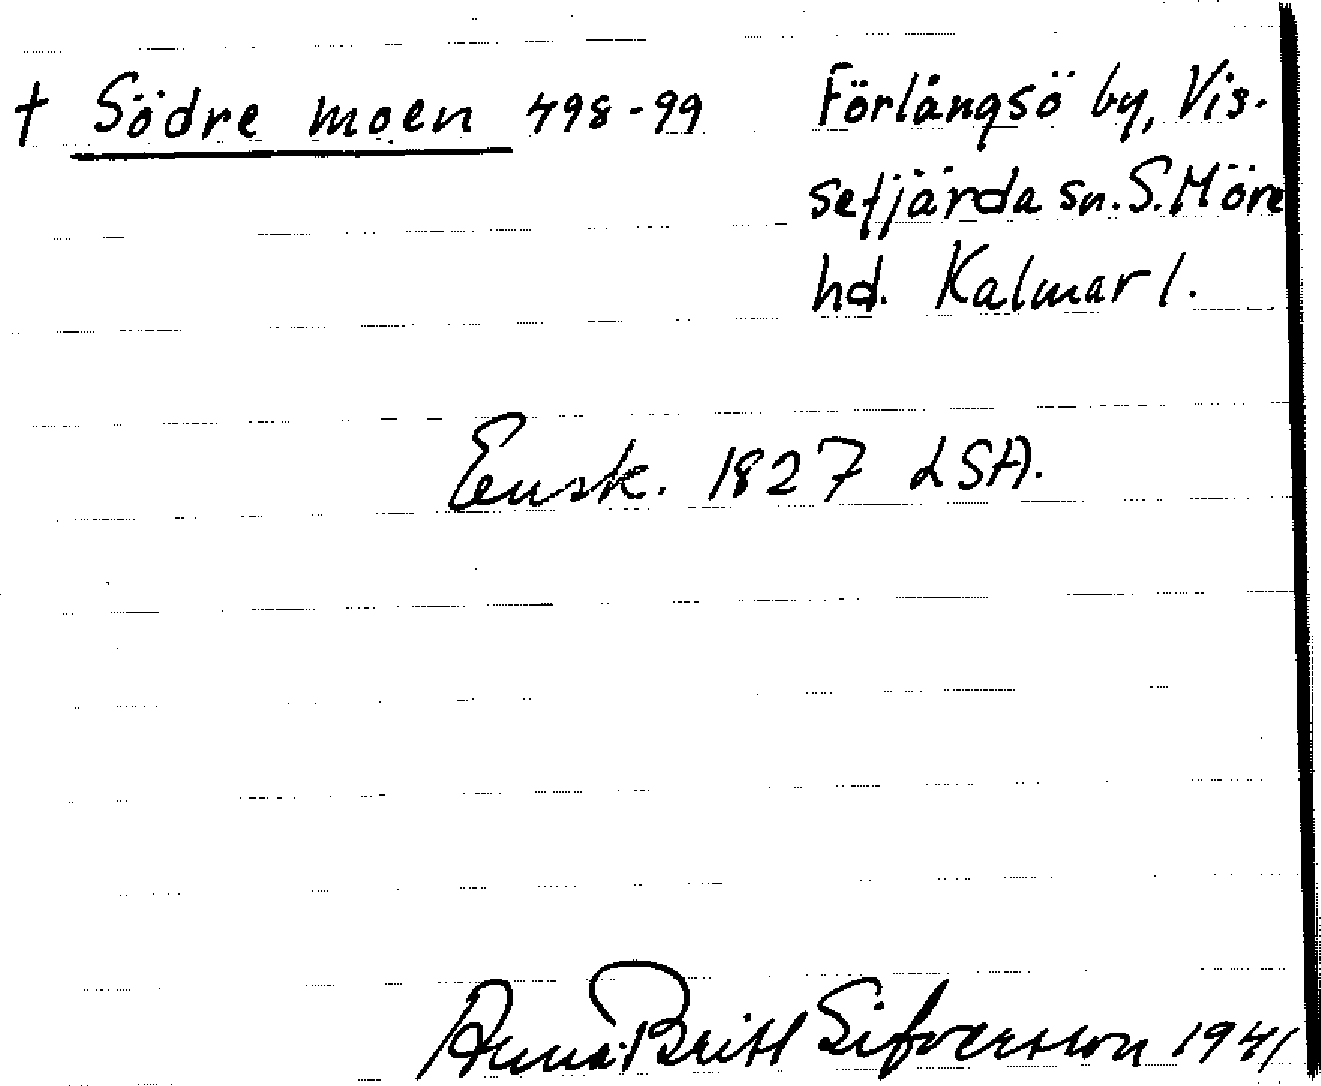 † Södre moen 498-99 Förlångsö by, Vis-
sefjärda sn. S. Möre
hd. Kalmar l.
Ensk. 1827 LSA.
Anna-Britt Sifversson 1941